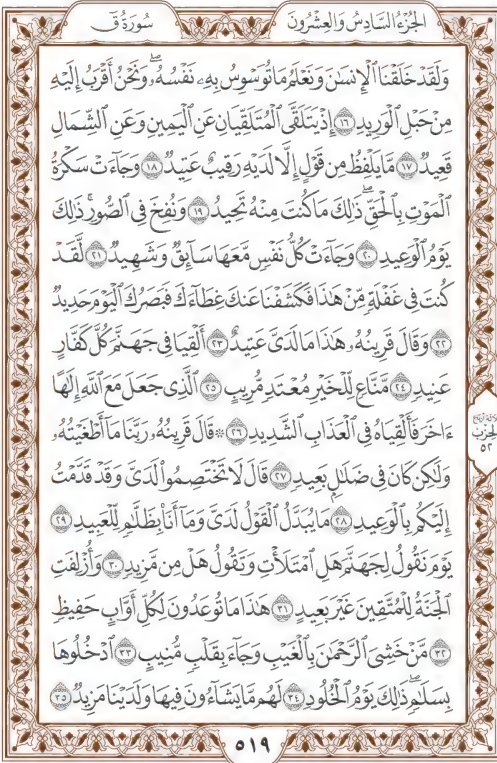 الجُزْءُ السَّادِسُ وَالعِشْرُونَ سُورَةُ قٓ
وَلَقَدْ خَلَقْنَا ٱلْإِنسَٰنَ وَنَعْلَمُ مَا تُوَسْوِسُ بِهِۦ نَفْسُهُۥۖ وَنَحْنُ أَقْرَبُ إِلَيْهِ
مِنْ حَبْلِ ٱلْوَرِيدِ ۝١٦ إِذْ يَتَلَقَّى ٱلْمُتَلَقِّيَانِ عَنِ ٱلْيَمِينِ وَعَنِ ٱلشِّمَالِ
قَعِيدٌ ۝١٧ مَّا يَلْفِظُ مِن قَوْلٍ إِلَّا لَدَيْهِ رَقِيبٌ عَتِيدٌ ۝١٨ وَجَآءَتْ سَكْرَةُ
ٱلْمَوْتِ بِٱلْحَقِّۖ ذَٰلِكَ مَا كُنتَ مِنْهُ تَحِيدُ ۝١٩ وَنُفِخَ فِى ٱلصُّورِۚ ذَٰلِكَ
يَوْمُ ٱلْوَعِيدِ ۝٢٠ وَجَآءَتْ كُلُّ نَفْسٍ مَّعَهَا سَآئِقٌ وَشَهِيدٌ ۝٢١ لَّقَدْ
كُنتَ فِى غَفْلَةٍ مِّنْ هَٰذَا فَكَشَفْنَا عَنكَ غِطَآءَكَ فَبَصَرُكَ ٱلْيَوْمَ حَدِيدٌ
۝٢٢ وَقَالَ قَرِينُهُۥ هَٰذَا مَا لَدَىَّ عَتِيدٌ ۝٢٣ أَلْقِيَا فِى جَهَنَّمَ كُلَّ كَفَّارٍ
عَنِيدٍ ۝٢٤ مَّنَّاعٍ لِّلْخَيْرِ مُعْتَدٍ مُّرِيبٍ ۝٢٥ ٱلَّذِى جَعَلَ مَعَ ٱللَّهِ إِلَٰهًا
ءَاخَرَ فَأَلْقِيَاهُ فِى ٱلْعَذَابِ ٱلشَّدِيدِ ۝٢٦ ۞ قَالَ قَرِينُهُۥ رَبَّنَا مَآ أَطْغَيْتُهُۥ
وَلَٰكِن كَانَ فِى ضَلَٰلٍۭ بَعِيدٍ ۝٢٧ قَالَ لَا تَخْتَصِمُوا۟ لَدَىَّ وَقَدْ قَدَّمْتُ
إِلَيْكُم بِٱلْوَعِيدِ ۝٢٨ مَا يُبَدَّلُ ٱلْقَوْلُ لَدَىَّ وَمَآ أَنَا۠ بِظَلَّٰمٍ لِّلْعَبِيدِ ۝٢٩
يَوْمَ نَقُولُ لِجَهَنَّمَ هَلِ ٱمْتَلَأْتِ وَتَقُولُ هَلْ مِن مَّزِيدٍ ۝٣٠ وَأُزْلِفَتِ
ٱلْجَنَّةُ لِلْمُتَّقِينَ غَيْرَ بَعِيدٍ ۝٣١ هَٰذَا مَا تُوعَدُونَ لِكُلِّ أَوَّابٍ حَفِيظٍ
۝٣٢ مَّنْ خَشِىَ ٱلرَّحْمَٰنَ بِٱلْغَيْبِ وَجَآءَ بِقَلْبٍ مُّنِيبٍ ۝٣٣ ٱدْخُلُوهَا
بِسَلَٰمٍۖ ذَٰلِكَ يَوْمُ ٱلْخُلُودِ ۝٣٤ لَهُم مَّا يَشَآءُونَ فِيهَا وَلَدَيْنَا مَزِيدٌ ۝٣٥
الحِزْب
٥٢
٥١٩